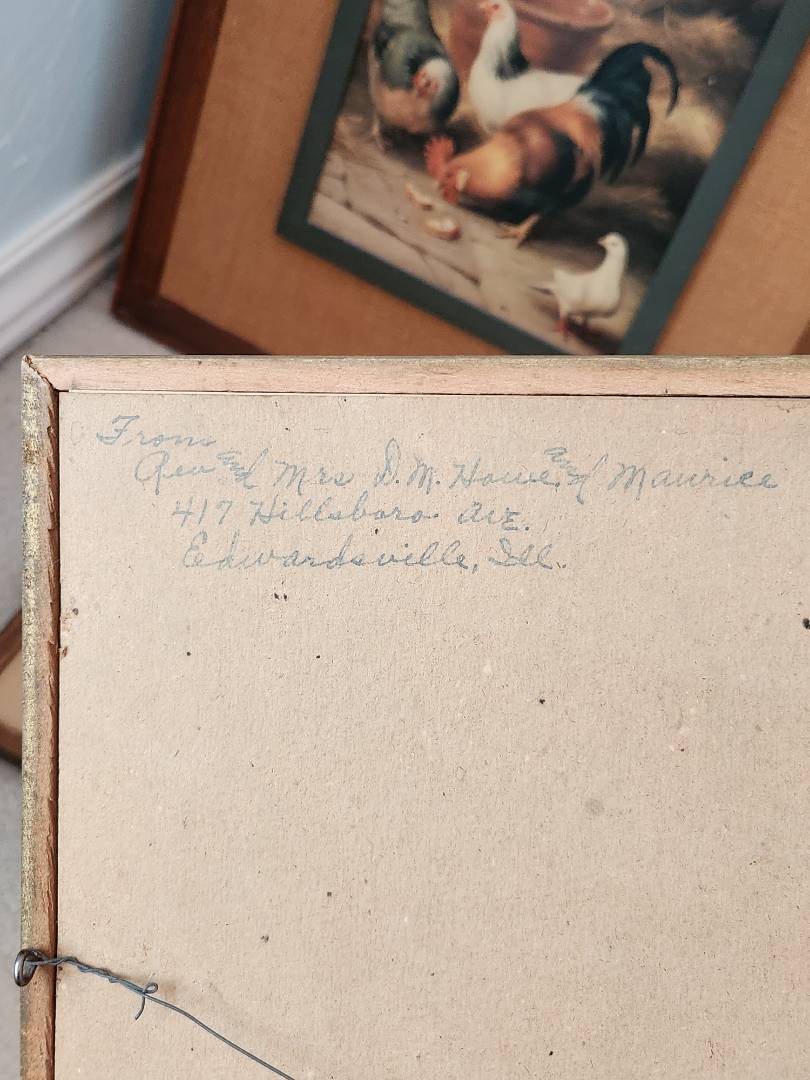 From
Rev and Mrs D.M. Howe and Maurice
417 Hillsboro Ave.
Edwardsville, Ill.